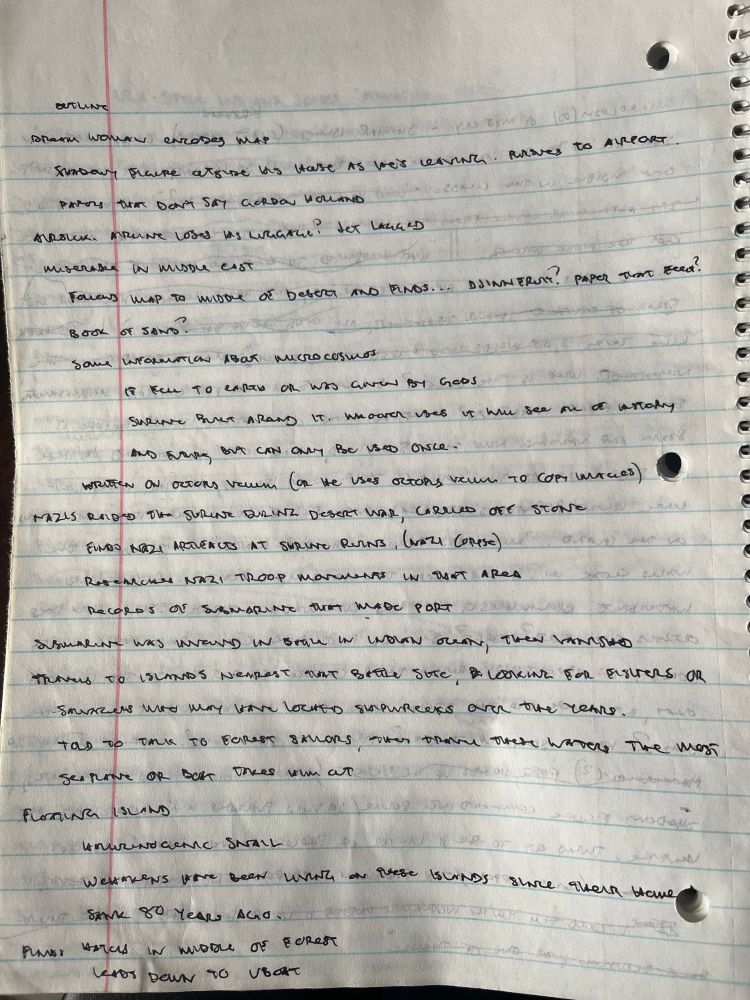 OUTLINE
DREAM WOMAN ENCODES MAP
SHADOWY FIGURE OUTSIDE HIS HOUSE AS HE'S LEAVING. PURSUES TO AIRPORT.
PAPERS THAT DON'T SAY GORDON HOLLAND
AIRSICK. AIRLINE LOSES HIS LUGGAGE? JET LAGGED
MISERABLE IN MIDDLE EAST
FOLLOWS MAP TO MIDDLE OF DESERT AND FINDS... DJINN FRUIT? PAPER THAT
BOOK OF SAND?
SOME INFORMATION ABOUT MICROCOSMOS
IT FELL TO EARTH OR WAS GIVEN BY GODS
SHRINE BUILT AROUND IT. WHOEVER USES IT WILL SEE ALL OF HISTORY
AND FUTURE, BUT CAN ONLY BE USED ONCE.
WRITTEN ON OCTOPUS VELLUM (OR HE USES OCTOPUS VELLUM TO COPY IMAGES)
NAZIS RAIDED THE SHRINE DURING DESERT WAR, CARRIED OFF STONE
FINDS NAZI ARTIFACTS AT SHRINE RUINS, (NAZI CORPSE)
RESEARCHES NAZI TROOP MOVEMENTS IN THAT AREA
RECORDS OF SUBMARINE THAT MADE PORT
SUBMARINE WAS INVOLVED IN BATTLE IN INDIAN OCEAN, THEN VANISHED
TRAVELS TO ISLANDS NEAREST THAT BATTLE SITE, LOOKING FOR FISHERS OR
SALVAGERS WHO MAY HAVE LOCATED SHIPWRECKS OVER THE YEARS.
TOLD TO TALK TO FOREST SAILORS, THEY TRAVEL THESE WATERS THE MOST
SEAPLANE OR BOAT TAKES HIM OUT
FLOATING ISLAND
HALLUCINOGENIC SNAIL
HAVE BEEN LIVING ON THESE ISLANDS SINCE THEIR HOME
SANK 80 YEARS AGO.
FINDS HATCH IN MIDDLE OF FOREST
LEADS DOWN TO UBOAT